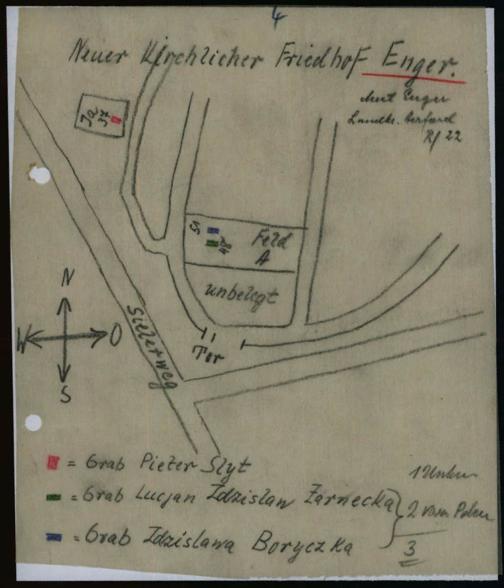 4
Neuer Kirchlicher Friedhof Enger.
Amt Enger
Landkr. Herford
22
Ja
37
51
48
Feld
A
unbelegt
N
W O
S
Sielerweg
Tor
= Grab Pieter Slyt
= Grab Lucjan Zdzislaw Zarnecka
= Grab Zdzislawa Boryczka
1 Unbek.
2 von Polen
3